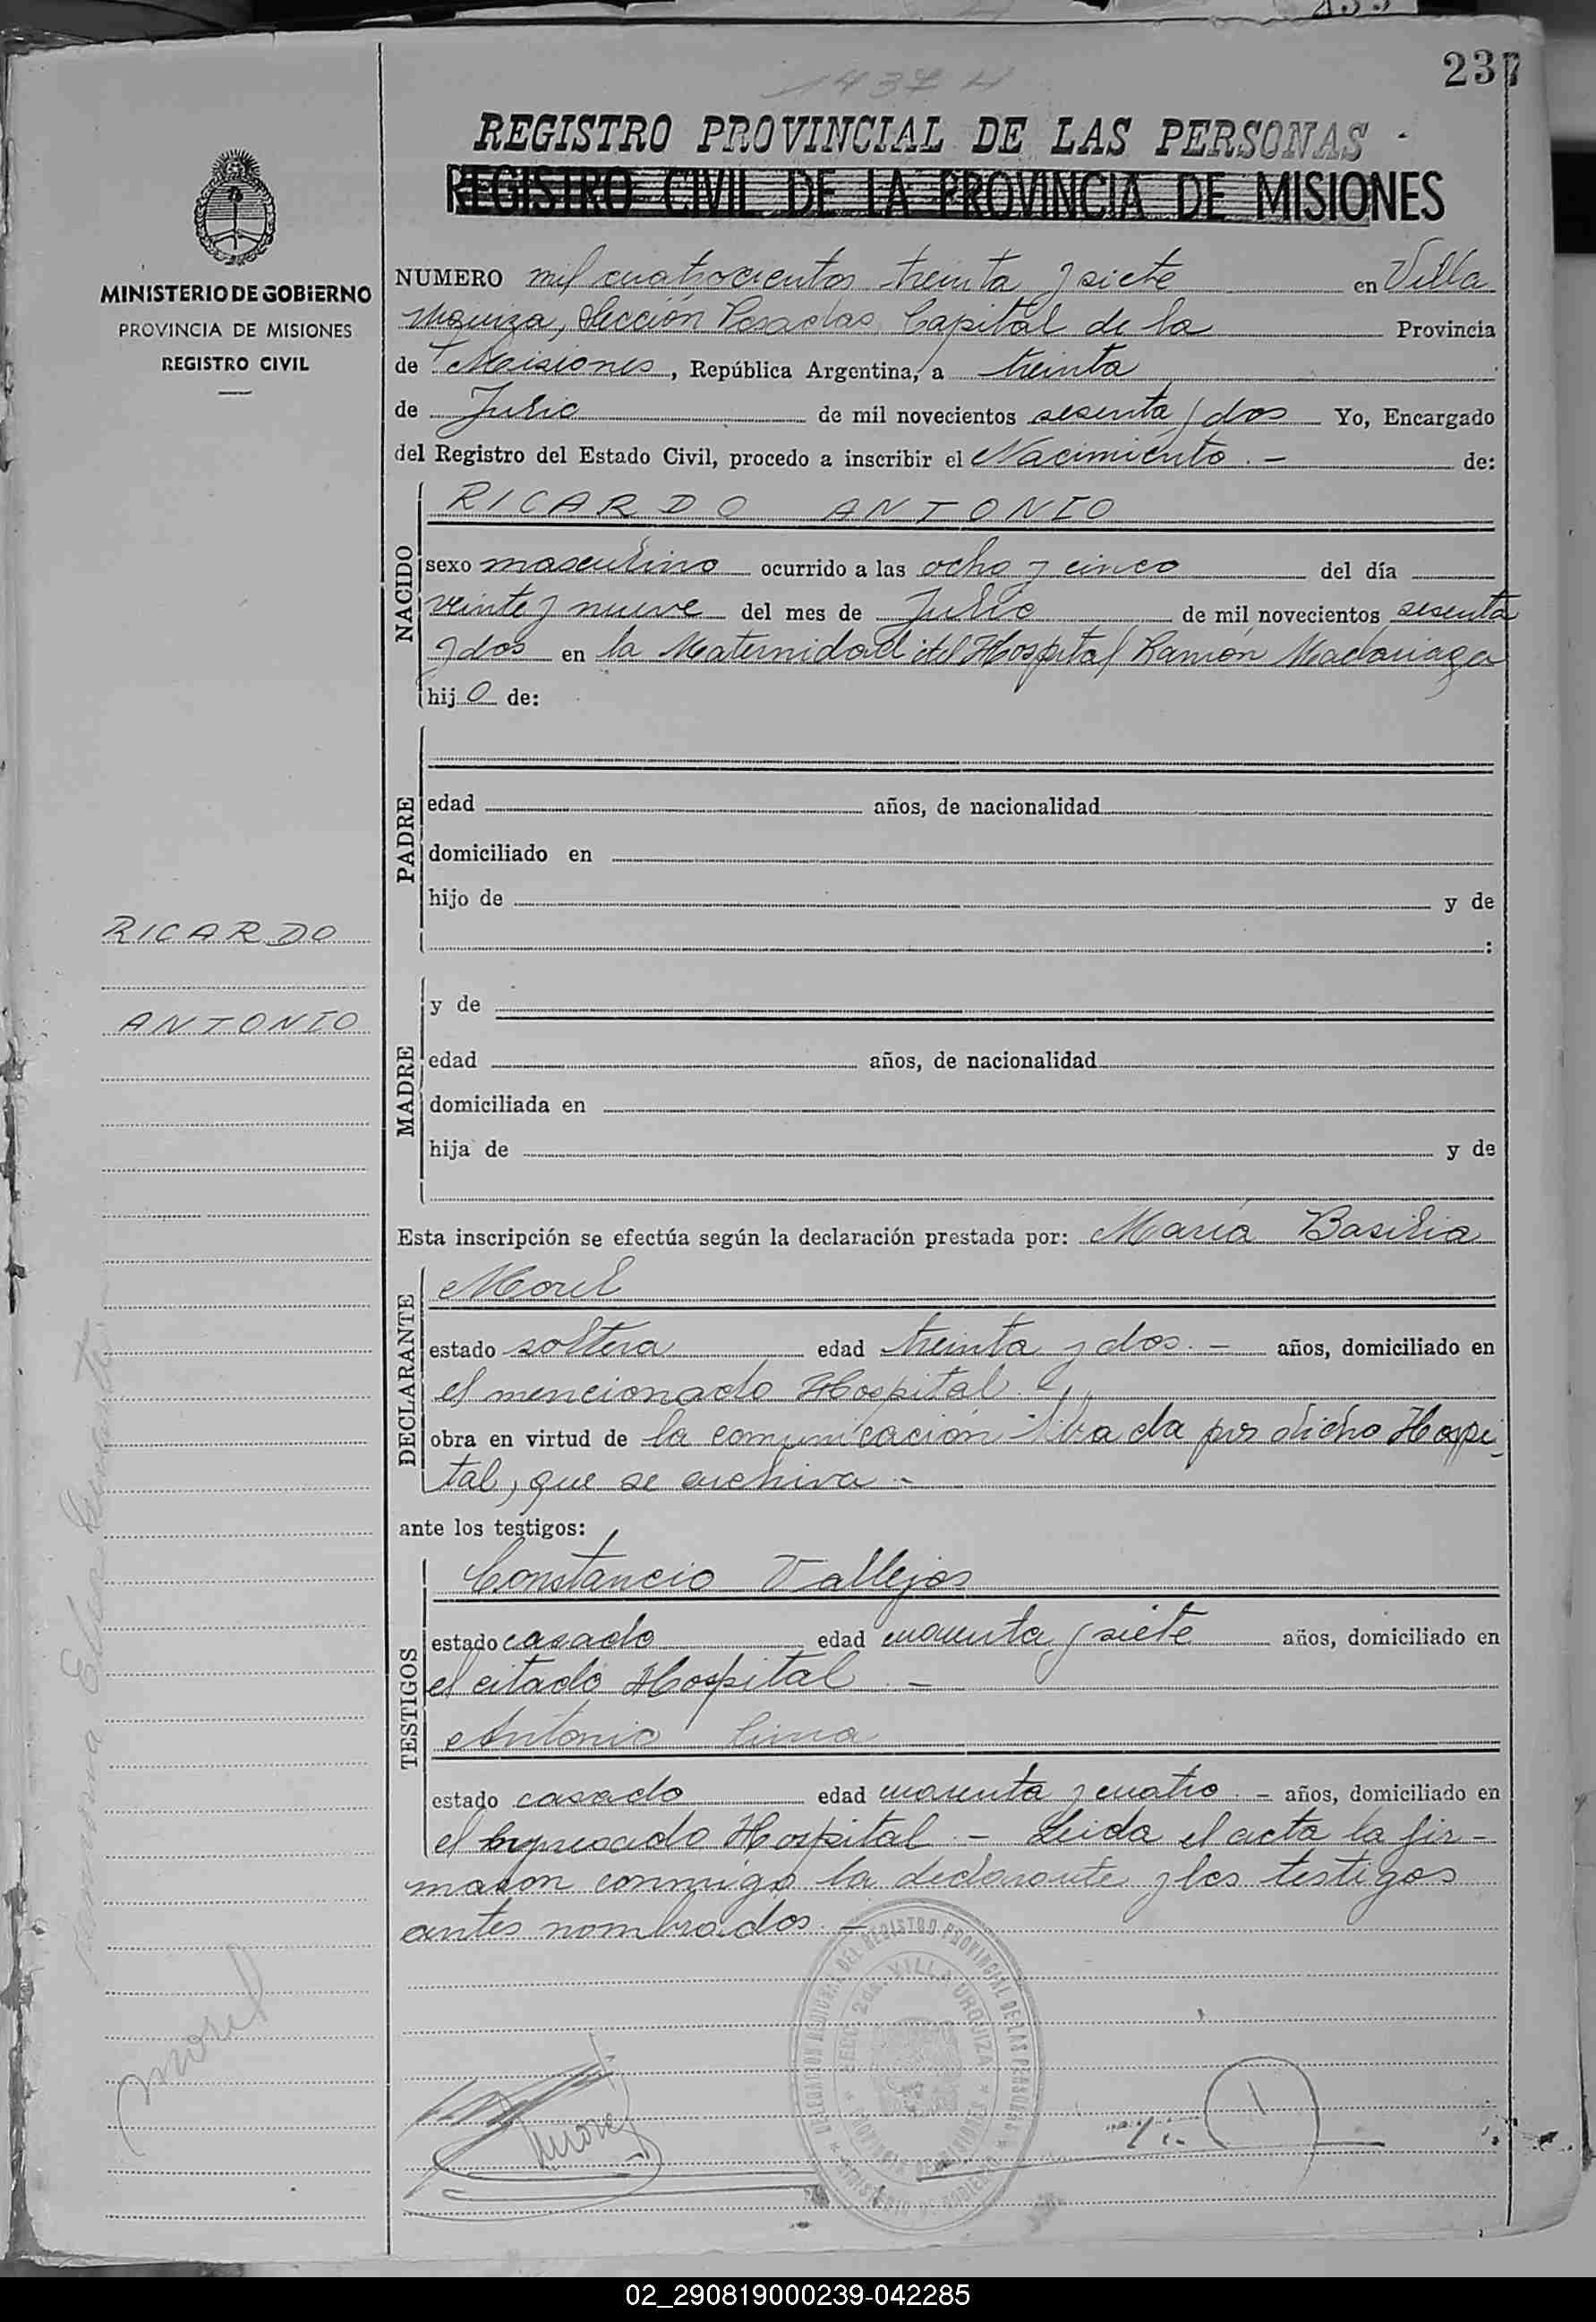 237
1437 H
REGISTRO PROVINCIAL DE LAS PERSONAS -
REGISTRO CIVIL DE LA PROVINCIA DE MISIONES
MINISTERIO DE GOBIERNO
PROVINCIA DE MISIONES
REGISTRO CIVIL
NUMERO mil cuatrocientos treinta y siete en Villa
Urquiza, Sección Posadas Capital de la Provincia
de Misiones, República Argentina, a treinta
de Julio de mil novecientos sesenta y dos Yo, Encargado
del Registro del Estado Civil, procedo a inscribir el Nacimiento . - de:
NACIDO
RICARDO ANTONIO
sexo masculino ocurrido a las ocho y cinco del día
veinte y nueve del mes de Julio de mil novecientos sesenta
y dos en la Maternidad del Hospital Ramón Madariaga
hijo de:
PADRE
edad años, de nacionalidad
domiciliado en
hijo de y de
:
RICARDO
ANTONIO
MADRE
y de
edad años, de nacionalidad
domiciliada en
hija de y de
Esta inscripción se efectúa según la declaración prestada por: María Basilia
DECLARANTE
Morel
estado soltera edad treinta y dos. - años, domiciliado en
el mencionado Hospital
obra en virtud de la comunicación librada por dicho Hospi-
tal, que se archiva -
ante los testigos:
TESTIGOS
Constancio Vallejos
estado casado edad cuarenta y siete años, domiciliado en
el citado Hospital . -
Antonio Lima
estado casado edad cuarenta y cuatro . - años, domiciliado en
el expresado Hospital . - Leida el acta la fir-
maron conmigo la declarante y los testigos
antes nombrados. -
Morel
DELEGACION REGIONAL DEL REGISTRO PROVINCIAL DE LAS PERSONAS
SECC. 2da. VILLA URQUIZA
PROVINCIA DE MISIONES
MINISTERIO DE GOBIERNO
Morel
02_290819000239-042285